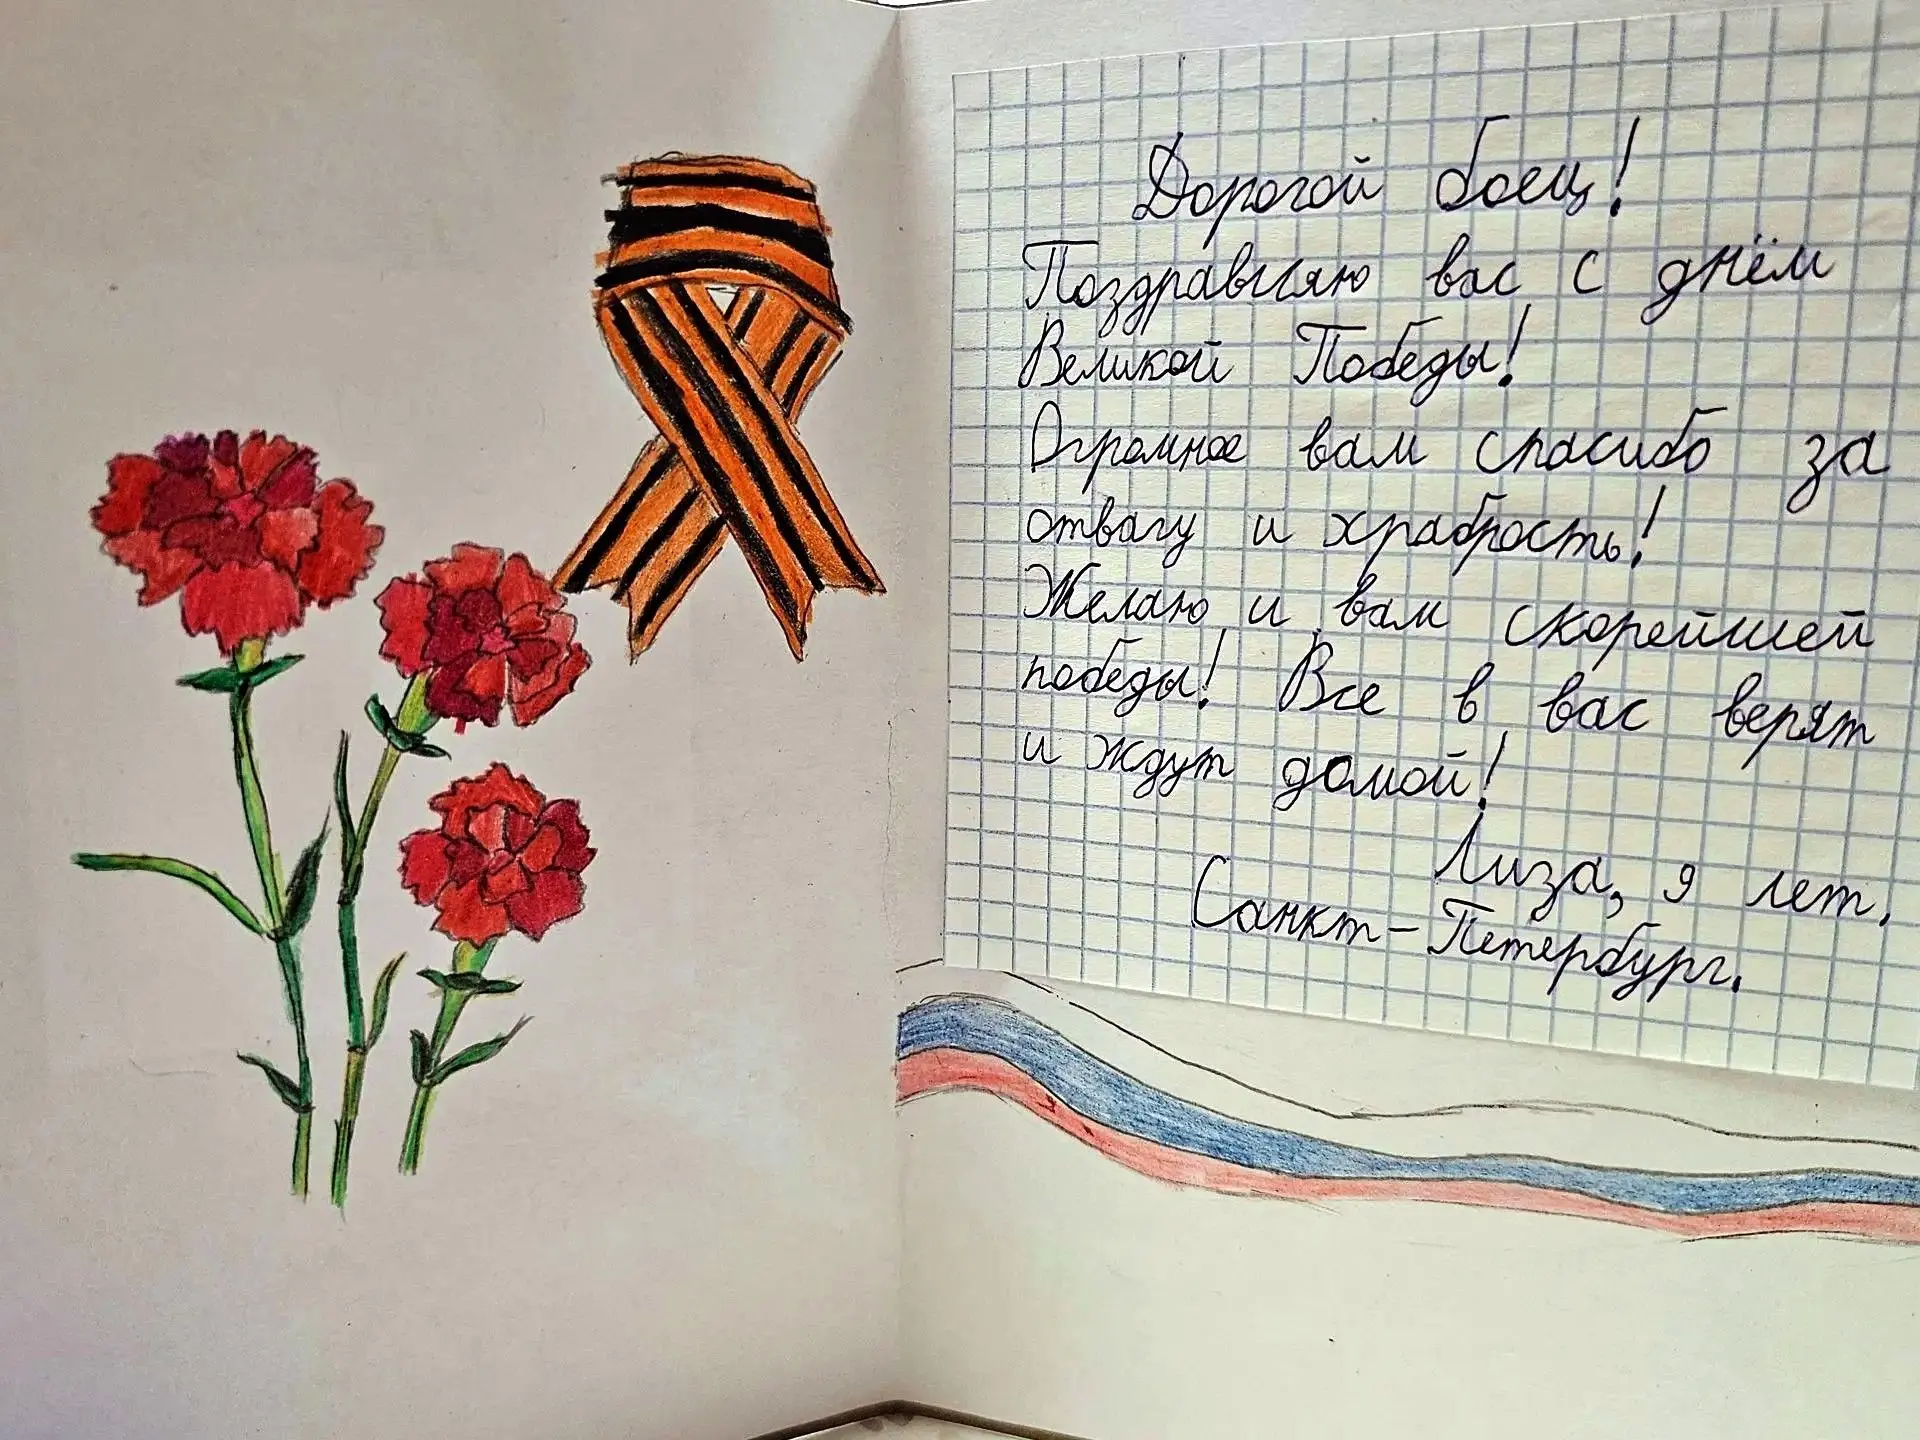 Дорогой боец!
Поздравляю вас с днём
Великой Победы!
Огромное вам спасибо за
отвагу и храбрость!
Желаю и вам скорейшей
победы! Все в вас верят
и ждут домой!
Лиза, 9 лет.
Санкт-Петербург.